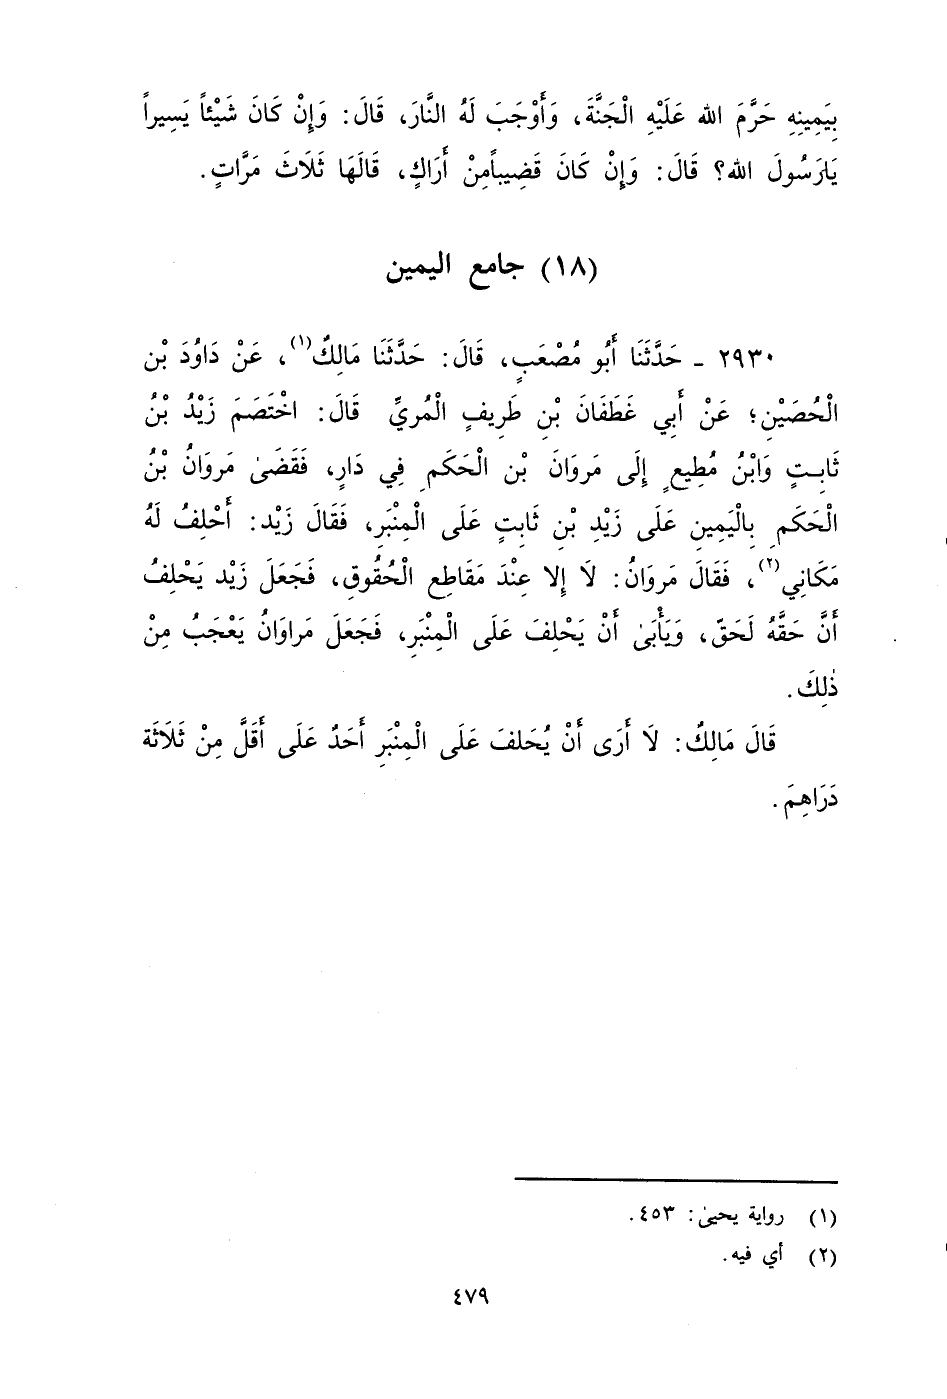 بِيَمِينِهِ حَرَّمَ الله عَلَيْهِ الْجَنَّةَ، وَأَوْجَبَ لَهُ النَّارَ، قَالَ: وَإِنْ كَانَ شَيْئاً يَسِيراً
يَارَسُولَ الله؟ قَالَ: وَإِنْ كَانَ قَضِيباًمِنْ أَرَاكٍ، قَالَهَا ثَلَاثَ مَرَّاتٍ.
(١٨) جامع اليمين
٢٩٣٠ - حَدَّثَنَا أَبُو مُصْعَبٍ، قَالَ: حَدَّثَنَا مَالِكٌ(١)، عَنْ دَاوُدَ بْنِ
الْحُصَيْنِ؛ عَنْ أَبِي غَطَفَانَ بْنِ طَرِيفٍ الْمُريِّ قَالَ: اخْتَصَمَ زَيْدُ بْنُ
ثَابِتٍ وَابْنُ مُطِيعٍ إِلَى مَروَانَ بْنِ الْحَكَمِ فِي دَارٍ، فَقَضَىٰ مَروَانُ بْنُ
الْحَكَمِ بِالْيَمِينِ عَلَى زَيْدِ بْنِ ثَابِتٍ عَلَى الْمِنْبَرِ، فَقَالَ زَيْد: أَحْلِفُ لَهُ
مَكَانِي(٢)، فَقَالَ مَروَانُ: لَا إِلا عِنْدَ مَقَاطِعِ الْحُقُوقِ، فَجَعَلَ زَيْد يَحْلِفُ
أَنَّ حَقَّهُ لَحَقّ، وَيَأْبَىٰ أَنْ يَحْلِفَ عَلَى الْمِنْبَرِ، فَجَعَلَ مَراوَانُ يَعْجَبُ مِنْ
ذٰلِكَ.
قَالَ مَالِكٌ: لَا أَرَى أَنْ يُحَلفَ عَلَى الْمِنْبَرِ أَحَدٌ عَلَى أَقَلَّ مِنْ ثَلَاثَة
دَرَاهِمَ.
(١) رواية يحيىٰ: ٤٥٣.
(٢) أي فيه.
٤٧٩